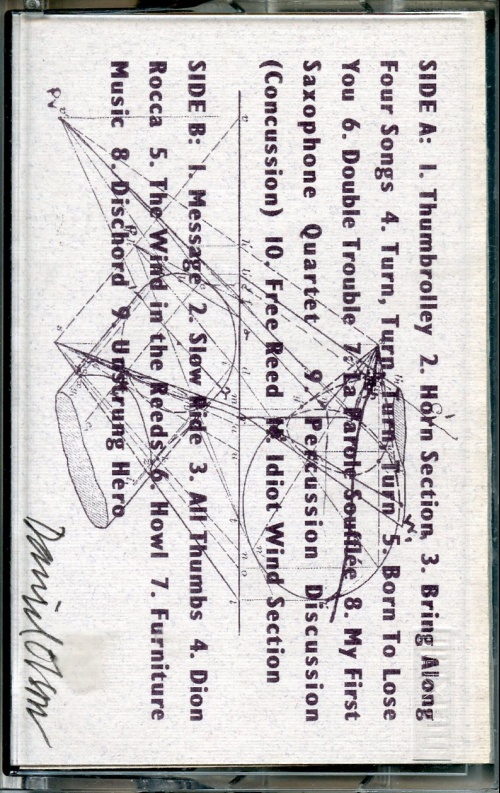 SIDE A: 1. Thumbrolley 2. Horn Section, 3. Bring Along
Four Songs 4. Turn, Turn, Turn, Turn 5. Born To Lose
You 6. Double Trouble 7. La Parole Soufflée 8. My First
Saxophone Quartet 9. Percussion Discussion
(Concussion) 10. Free Reed 11. Idiot Wind Section
SIDE B: 1. Message 2. Slow Ride 3. All Thumbs 4. Dion
Rocca 5. The Wind in the Reeds 6. Howl 7. Furniture
Music 8. Dischord 9. Unstrung Hero